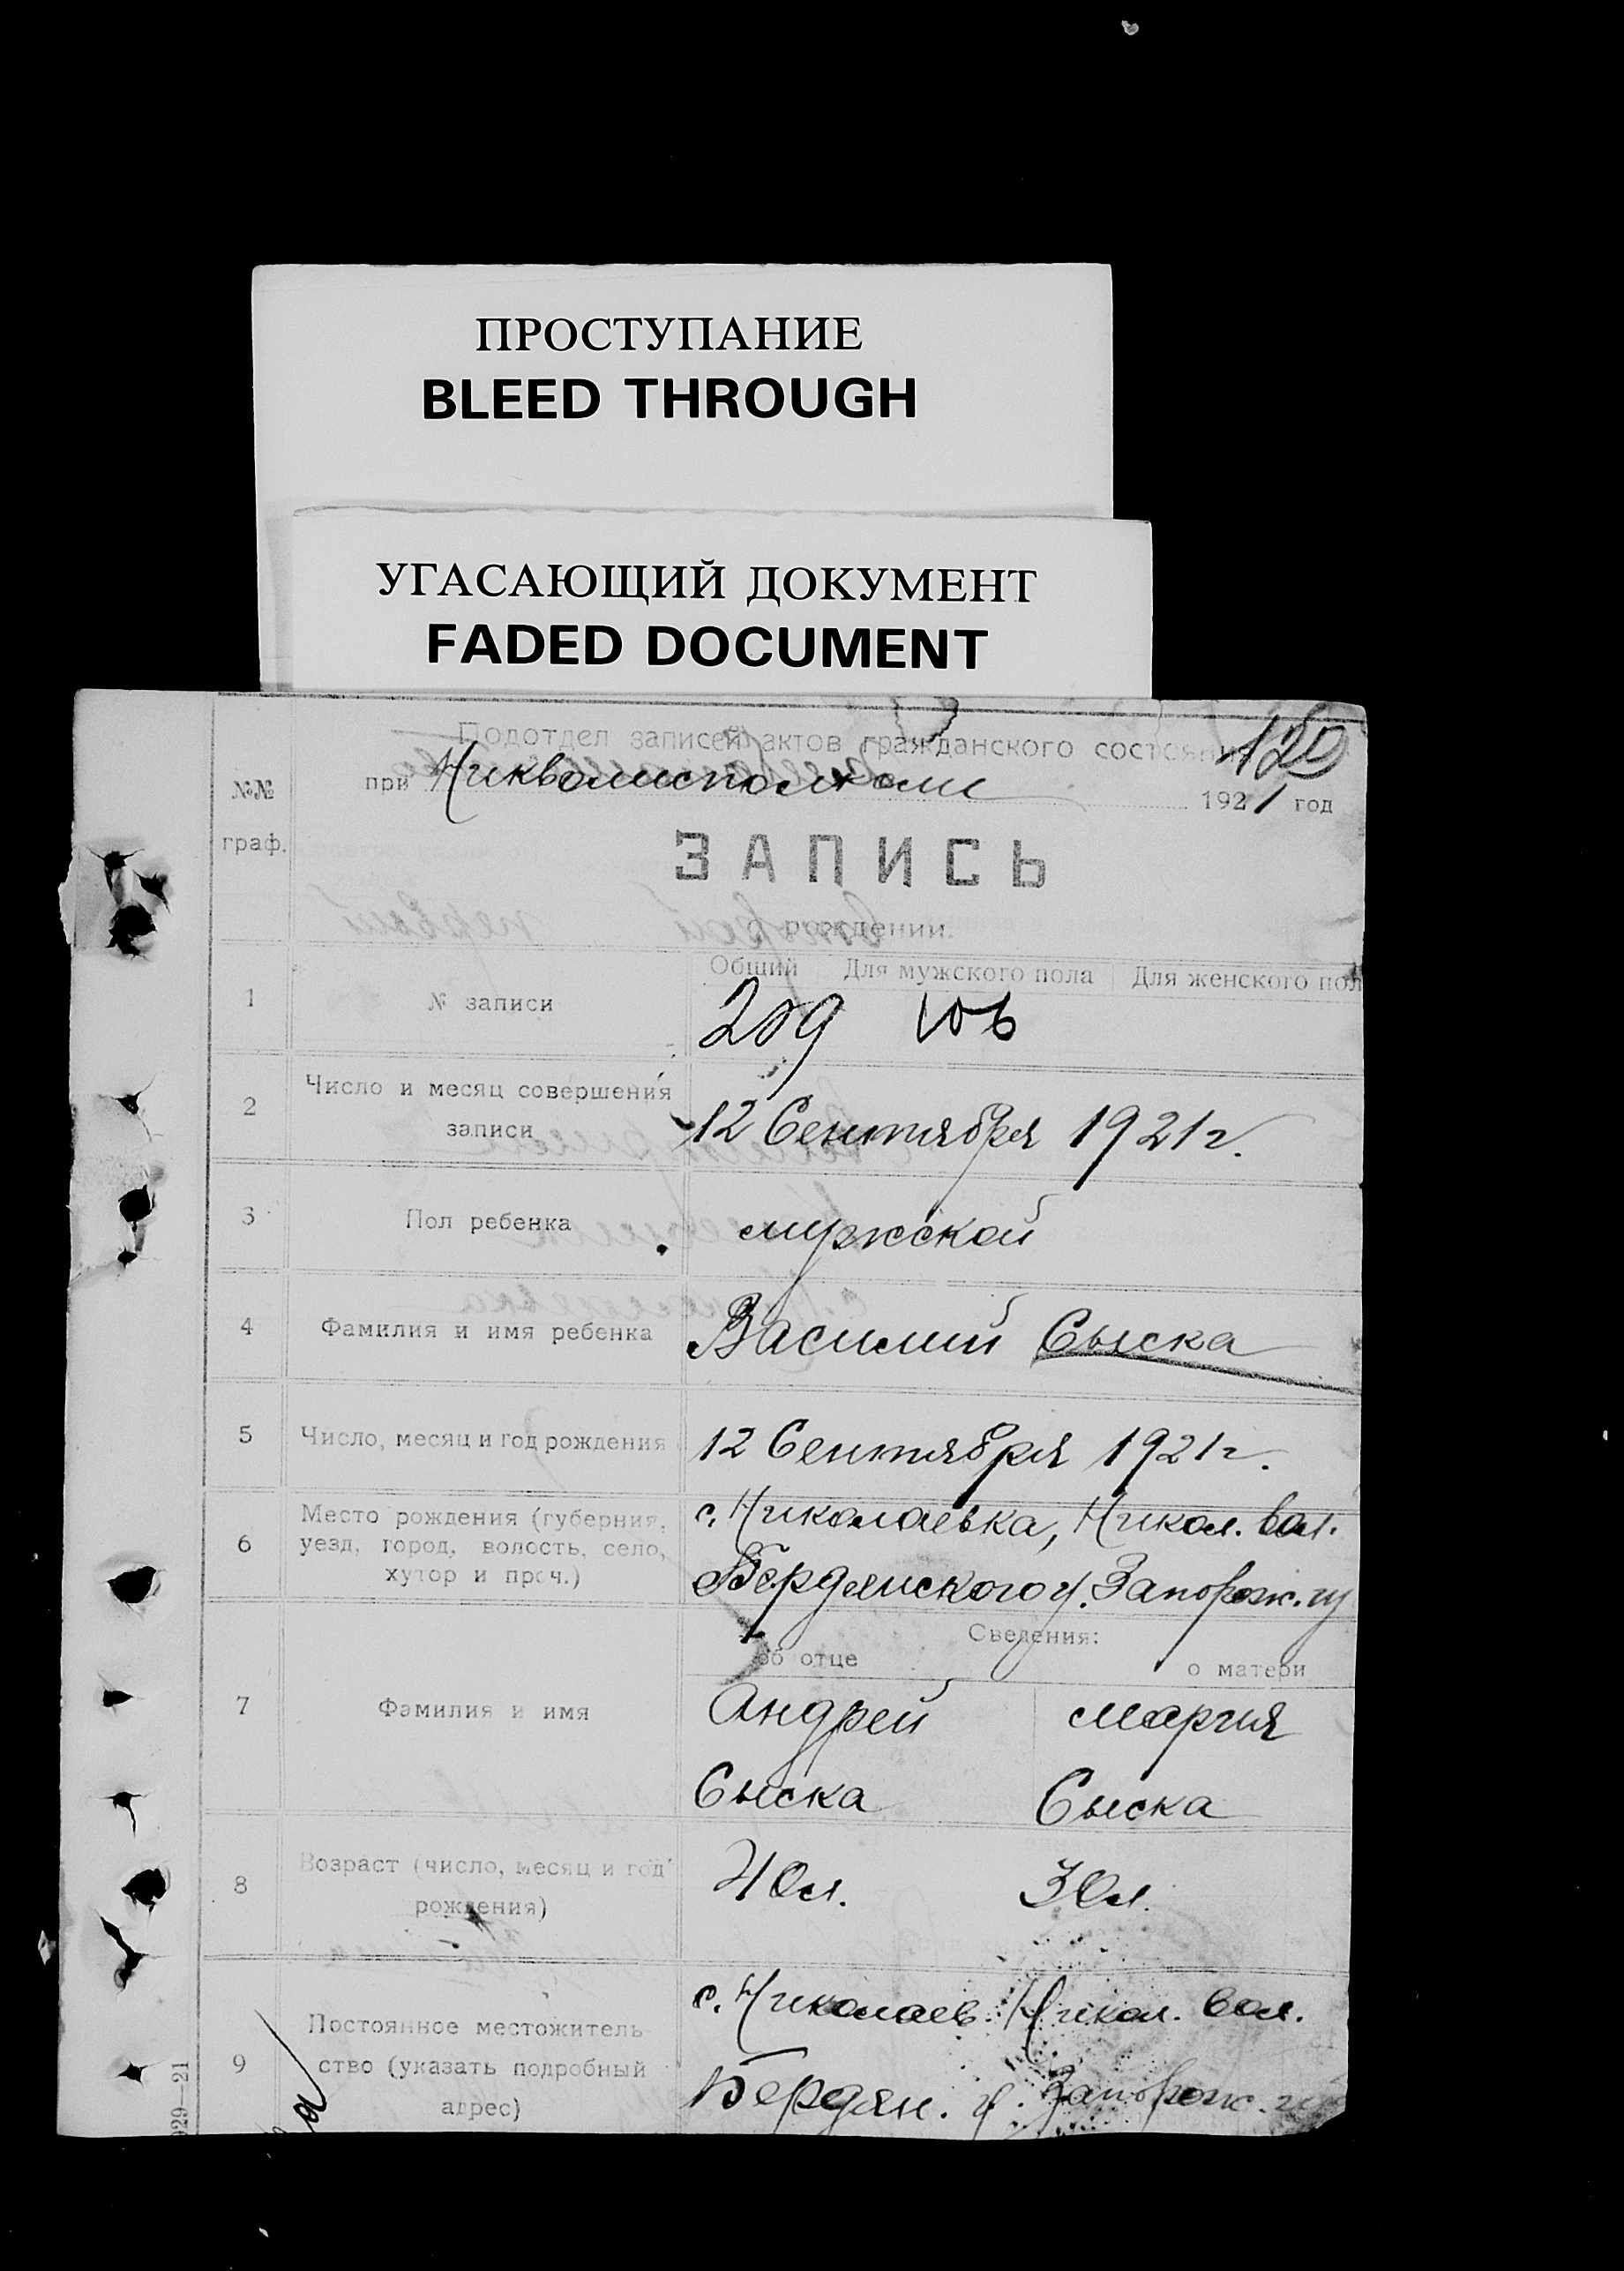 ПРОСТУПАНИЕ
BLEED THROUGH
УГАСАЮЩИЙ ДОКУМЕНТ
FADED DOCUMENT
120
Подотдел записей актов гражданского состояния
при Никволисполкоме 1921 год
№№
граф.
ЗАПИСЬ
о рождении.
Общий Для мужского пола Для женского пол
1 № записи 209 106
2 Число и месяц совершения
записи 12 Сентября 1921 г.
3 Пол ребенка мужской
4 Фамилия и имя ребенка Василий Сыска
5 Число, месяц и год рождения 12 Сентября 1921 г.
6 Место рождения (губерния,
уезд, город, волость, село,
хутор и проч.)
с. Николаевка, Никол. вол.
Бердянского у. Запорож. гу
Сведения:
об отце о матери
7 Фамилия и имя
Андрей Мария
Сыска Сыска
8 Возраст (число, месяц и год
рождения)
40 л. 30 л.
9 Постоянное местожитель
ство (указать подробный
адрес)
с. Николаев. Никол. вол.
Бердян. у. Запорож. гу
929—21